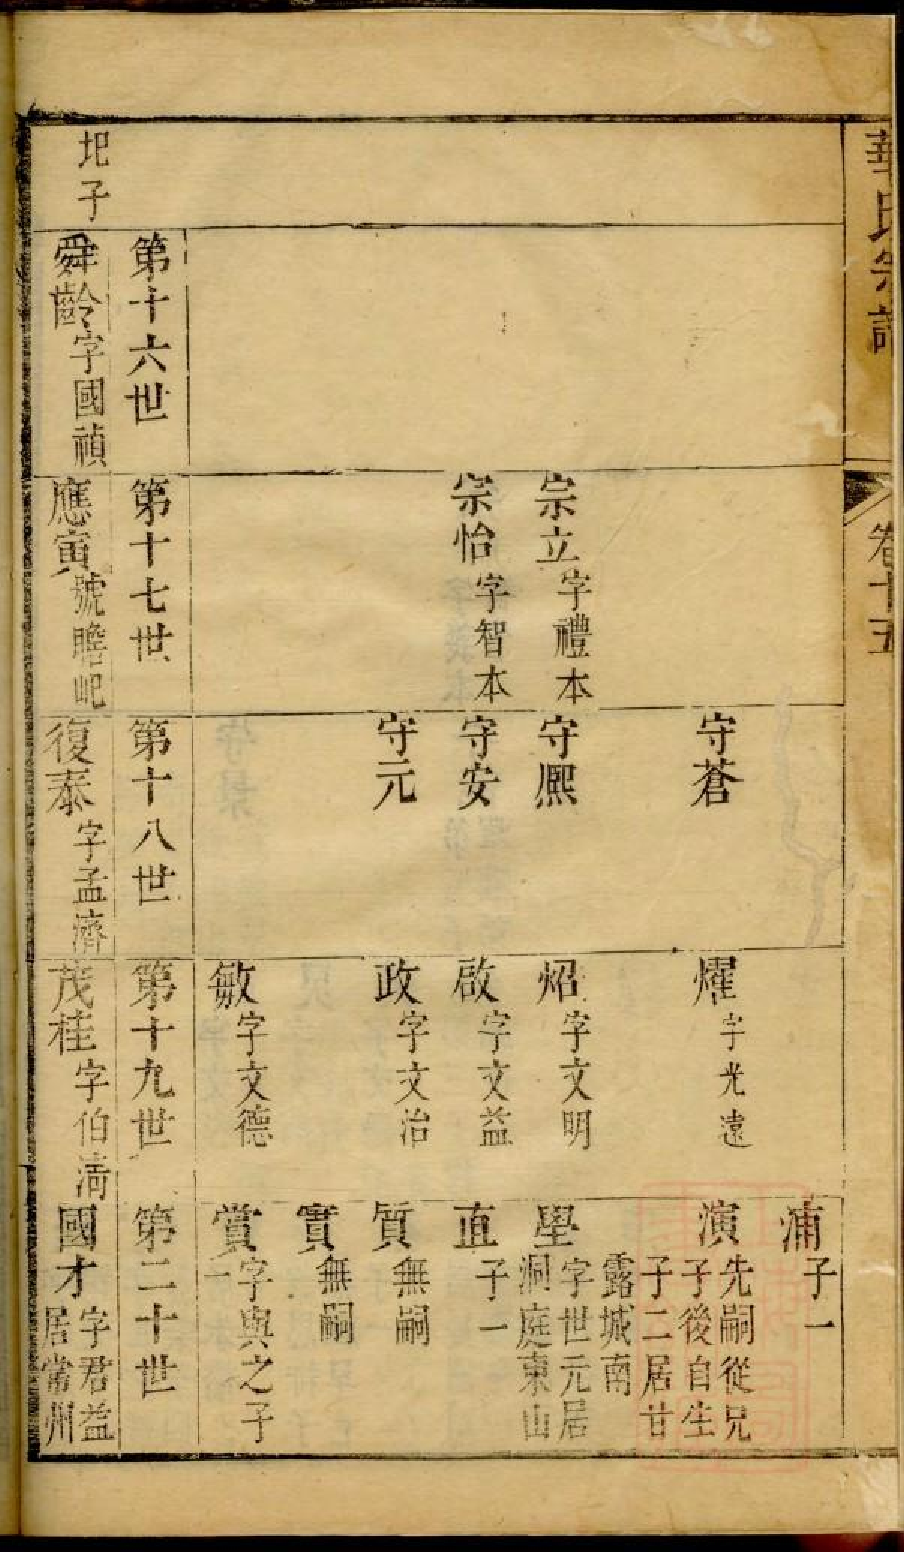 華氏宗譜
卷十五
宗立字禮本
宗怡字智本
守蒼
守熈
守安
守元
燿字光遠
炤字文明
啟字文益
政字文治
敏字文德
浦子一
演先嗣從兄子後自生子二居甘露城南
學字世元居洞庭東山
直子一
質無嗣
實無嗣
賞字與之子一
第十六世
第十七世
第十八世
第十九世
第二十世
圯子
舜齡字國禎
應寅號瞻屺
復泰字孟濟
茂桂字伯
國才字君益居常州